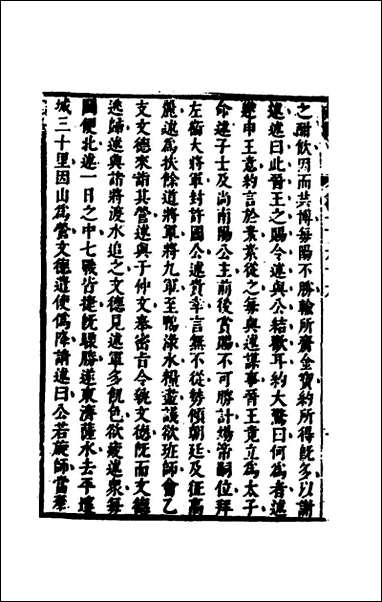 之酣飲因而共博每陽不勝輸所齎金寶約所得既多以謝
述述曰此晉王之賜令述與公結歡耳約大驚曰何為者述
遂申王意約言於素素從之每與述謀事晉王竟立為太子
命述子士及尚南陽公主前後賞賜不可勝計煬帝嗣位拜
左衞大將軍封許國公述貴幸言無不從勢傾朝廷及征高
麗述為扶餘道將軍將九軍至鴨淥水糧盡議欲班師會乙
支文德來詣其營述與于仲文奉密旨令執文德既而文德
逃歸述與諸將渡水追之文德見述軍多飢色欲疲述衆每
鬬便北述一日之中七戰皆捷既驟勝遂東濟薩水去平壤
城三十里因山為營文德遣使僞降請述曰公若旋師當奉